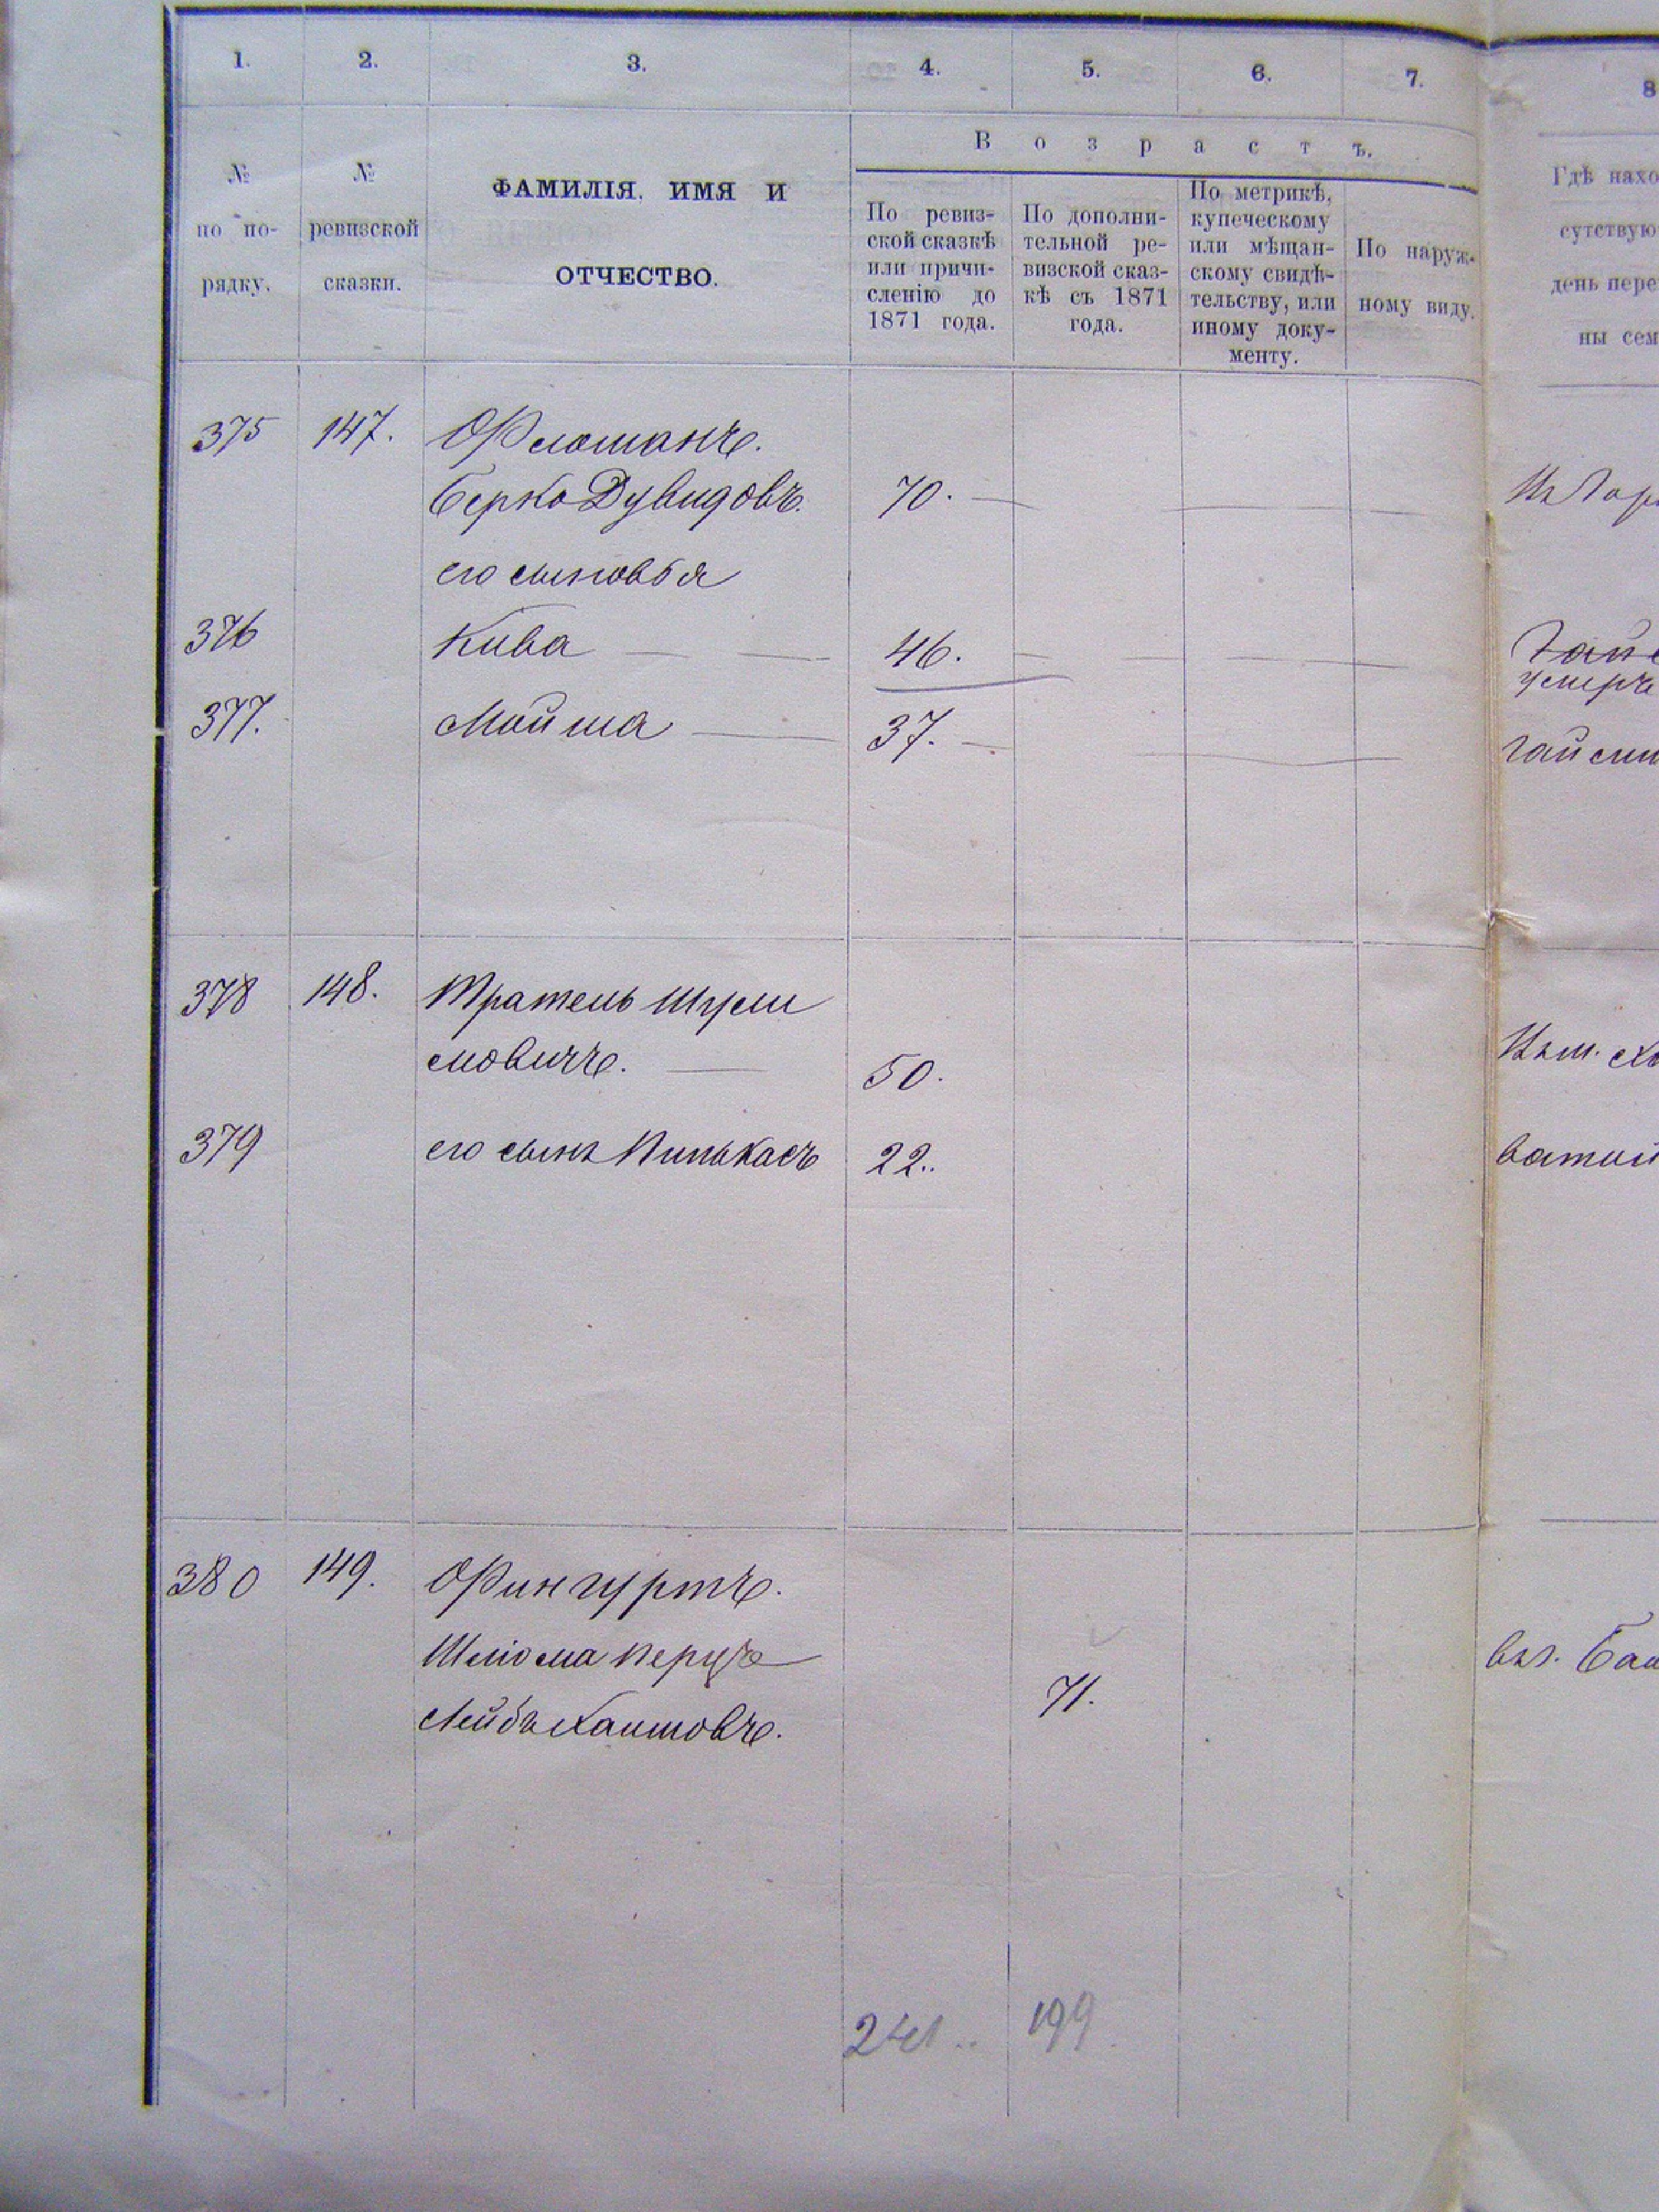 1. 2. 3. 4. 5. 6. 7. 8
№ по по- рядку.
№ ревизской сказки.
ФАМИЛІЯ, ИМЯ И
ОТЧЕСТВО.
Возрастъ.
По ревиз-
ской сказкѣ
или причи-
сленію до
1871 года.
По дополни-
тельной ре-
визской сказ-
кѣ съ 1871
года.
По метрикѣ,
купеческому
или мѣщан-
скому свидѣ-
тельству, или
иному доку-
менту.
По наруж-
ному виду.
Гдѣ нахо
сутствую
день пере
ны сем
375 147. Флошанъ.
Берко Дувидовъ. 70.
его сыновья
376 Кива 46.
умеръ
377. Мойша 37. Гайсин
378 148. Тратель Шули
мовичъ. 50.
379 его сынъ Пинькасъ 22..
380 149. Фингуртъ.
Шліома Перецъ
Лейбъ Хаимовъ. 71.
241.. 199